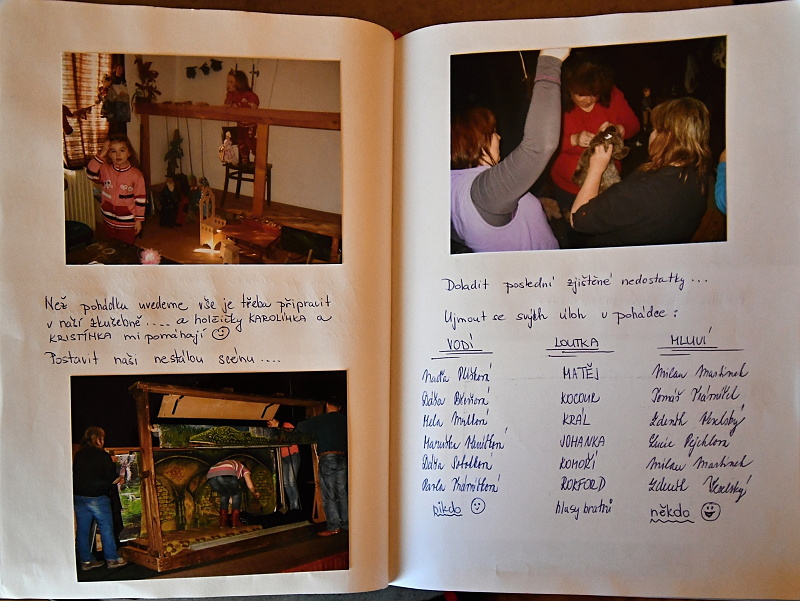 Než pohádku uvedeme vše je třeba připravit
v naší zkušebně .... a holčičky KAROLÍNKA a
KRISTÍNKA mi pomáhají
Postavit naši nestálou scénu ....
Doladit poslední zjištěné nedostatky ...
Ujmout se svých úloh v pohádce :
VODÍ LOUTKA MLUVÍ
MATĚJ Milan Martínek
Dáša KOCOUR Tomáš
KRÁL Zdeněk Veselský
Maruška JOHANKA Lucie Pejchlová
Dáša Sobotková KOMOŘÍ Milan Martínek
Pavla ROKFORD Zdeněk Veselský
nikdo hlasy bratrů někdo